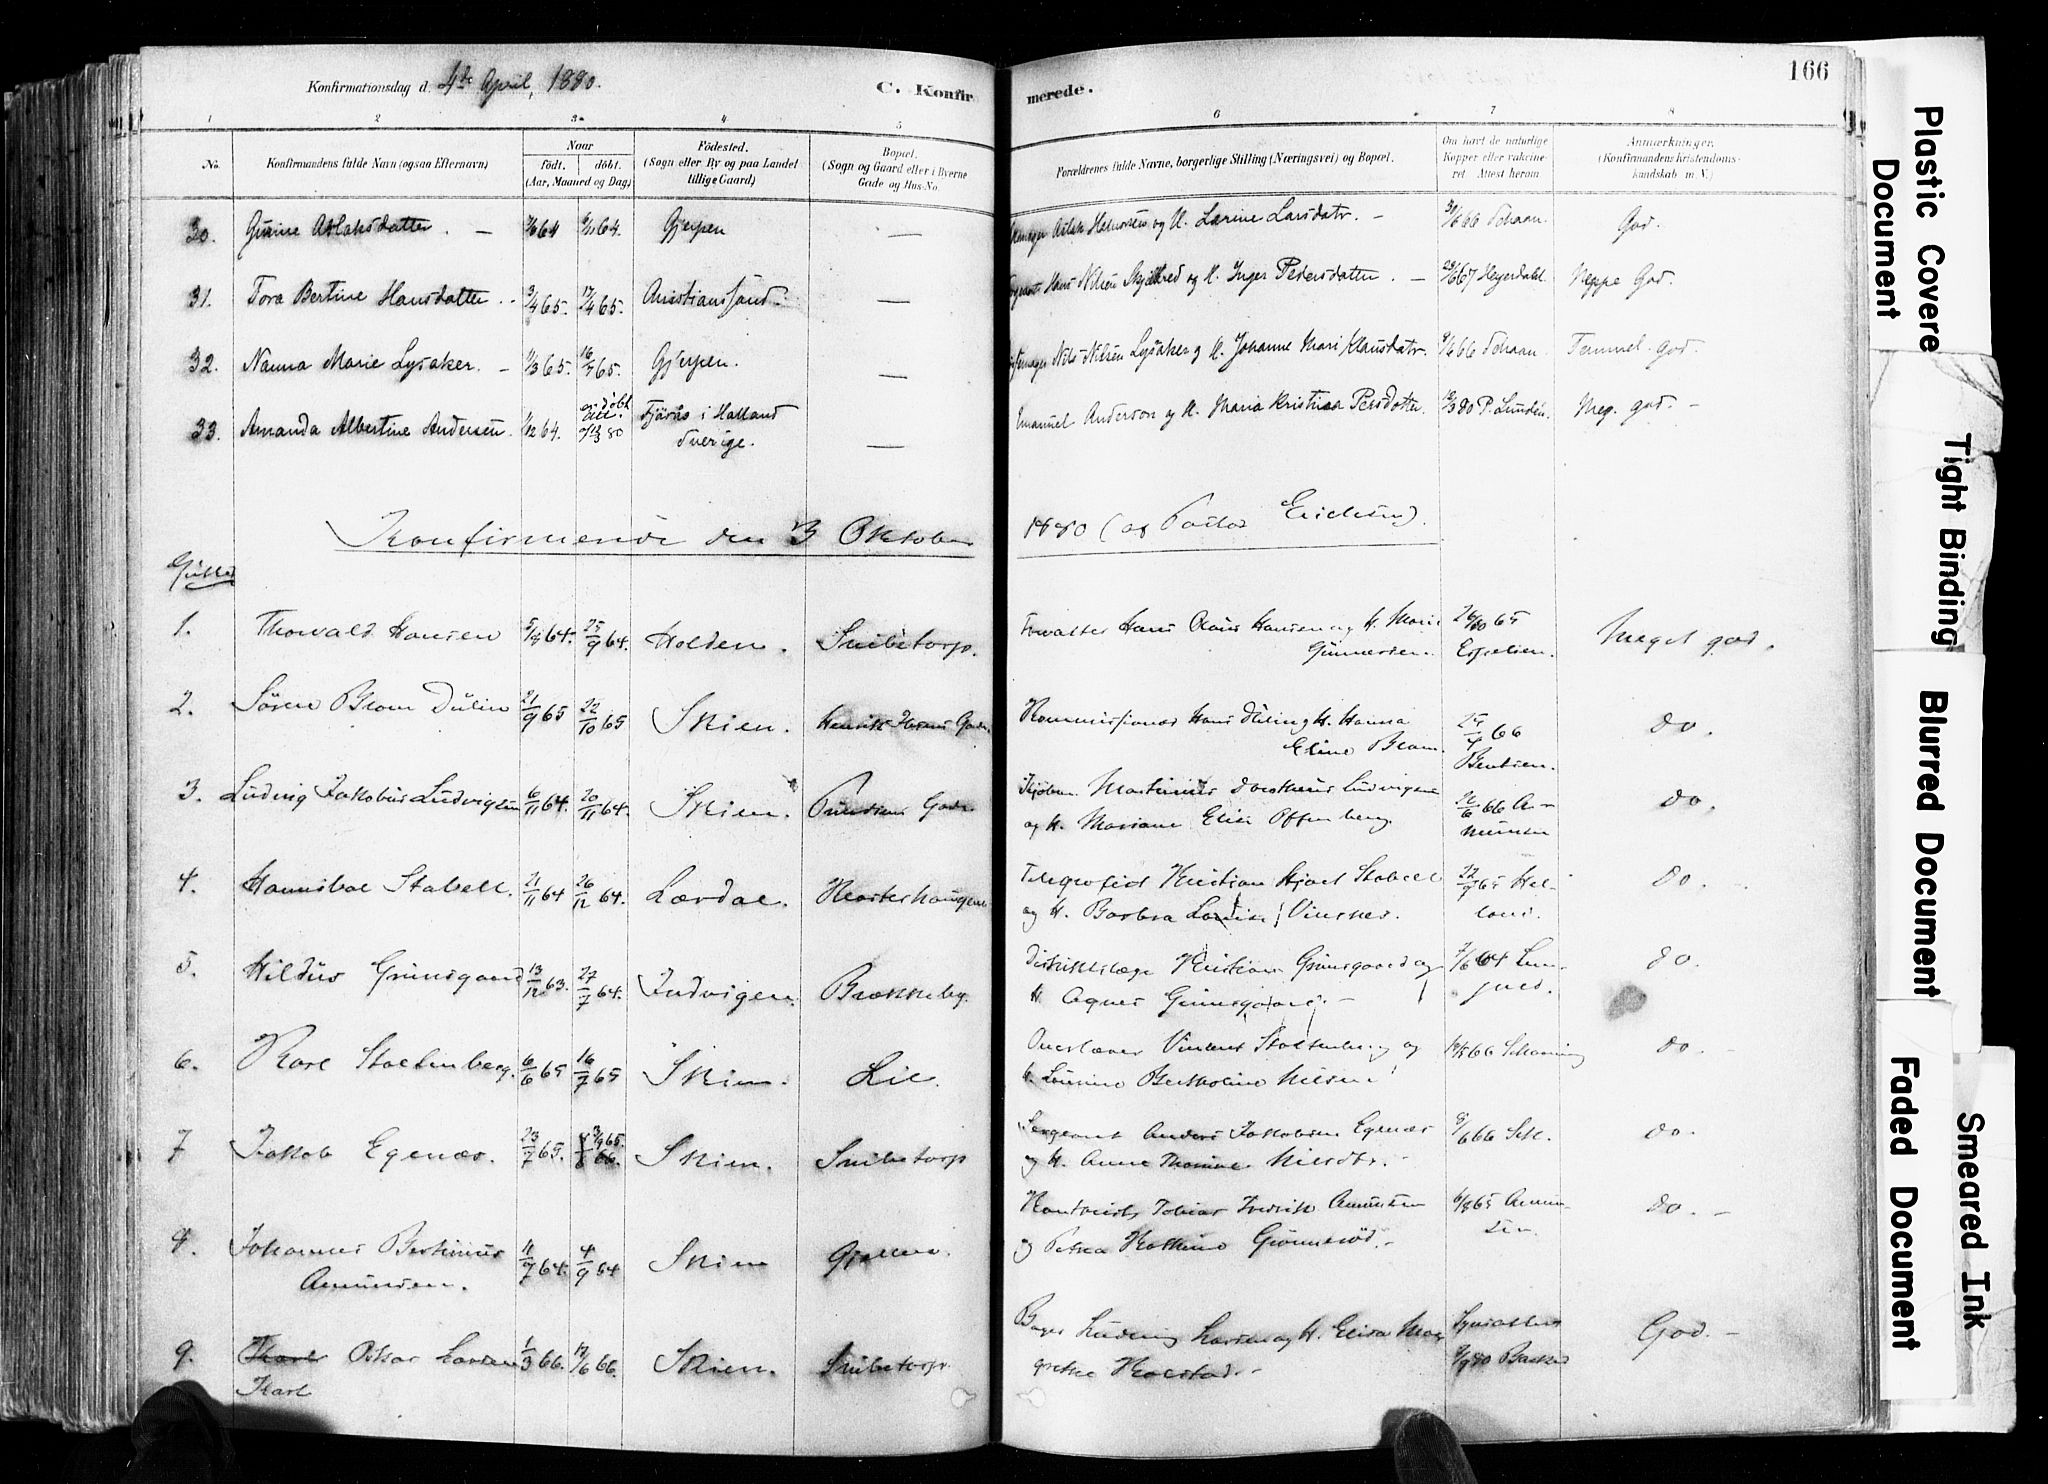 Konfirmationsdag d. 4de April, 1880.
C. Konfirmerede.
166
1 2 3 4 5 6 7 8
No. Konfirmandens fulde Navn (ogsaa Efternavn)
Naar
født. døbt.
(Aar, Maaned og Dag)
Fødested.
(Sogn eller By og paa Landet
tillige Gaard)
Bopæl.
(Sogn og Gaard eller i Byerne
Gade og Hus-No.
Forældrenes fulde Navne, borgerlige Stilling (Næringsvei) og Bopæl.
Om havt de naturlige
Kopper eller vakcine-
ret. Attest herom
Anmærkninger.
(Konfirmandens Kristendoms-
kundskab m. V.)
30. Gurine Aslaksdatter. 64 64. Gjerpen — Aslak Halvorsen og H. Larine Larsdatr. 66 Schaan. God.
31. Tora Bertine Hansdatter 3/4 65. 17/4 65. Christianssand — Hans Nilsen og H. Inger Pedersdatter. 67 Heyerdahl. Neppe God.
32. Nanna Marie Lysaker. 1/3 65. 16/7 65. Gjerpen. — Nils Nilsen Lysaker og H. Johanne Mari Klausdatr. 66 Schaan. Temmel. God.
33. Amanda Albertine Andersen. 1/12 64. 80 Fjärås i Halland
Sverige. — Emanuel Anderson og H. Maria Kristina Persdotter 80 P. Lundén. Meg. god.
Konfirmerede den 3 Oktober 1880 (af Pastor Erichsen).
Gutter
1. Thorvald Hansen 64. 25/9 64. Holden. Snibetorp. Forvalter Hans Olaus Hansen og H. Marie
65
Espelien. Meget god.
2. Sören Blom Dülin 21/9 65 22/10 65 Skien. Henrik Ibsens Gade. Kommissionær Hans Dülin og H. Hanna
Eline Blom. 66
Bentsen. do.
3. Ludvig Jakobus Ludvigsen 6/11 64. 20/11 64. Skien. Gade Martinius Ludvigsen
og H. Mariane Elise Offenberg. 66 A-
munsen do.
4. Hannibal Stabell. 21/11 64 26/12 64. Lærdal. Telegrafist Kristian Hjort Stabell
og H. Barbra Lovise Vinsnes. 65 do.
5. Hildus Grimsgaard 13/12 63. 27/7 64. Indvigen. Brekkeby. Distriktslæge Kristian Grimsgaard og
H. Agnes Grimsgaard. 64 do.
6. Karl Stoltenberg. 6/6 65 16/7 65 Skien. Lie. Overlærer Vincent Stoltenberg og
H. Bertholine Nilsen 66 Schanning do.
7 Jakob Egenæs. 23/7 65. 65. 66. Skien. Snibetorp Sergeant Anders Jakobsen Egenæs
og H. Anne Thomine Nilsdtr. 66 Sch. do.
8. Johannes Bertinius
Amunsen. 11/7 64. 4/9 64 Skien Tobias Fredrik Amunsen
og Petra Kathrine Grønnerød. 65 Amun-
sen. do.
9. Karl Oskar Larsen
Karl 1/3 66. 17/6 66. Skien. Snibetorp. Bager Ludvig Larsen og H. Elisa Mar-
grethe 80 Backer God.
Plastic Covere
Document
Tight Binding
Blurred Document
Faded Document
Smeared Ink